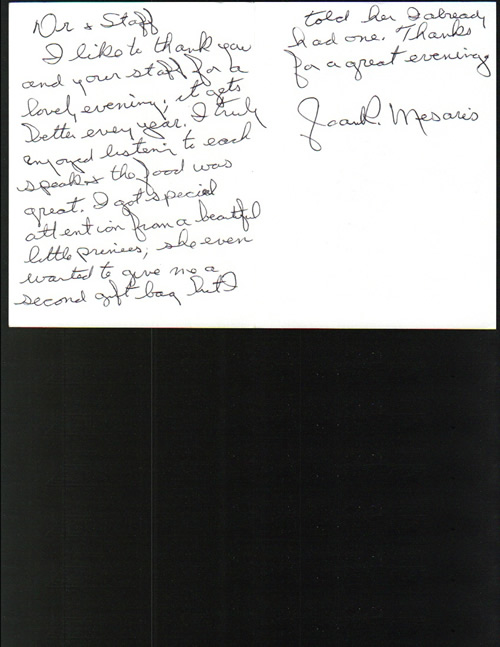 Dr & Staff
I like to thank you
and your staff for a
lovely evening, it gets
better every year. I truly
enjoyed listenin to each
speaker the food was
great. I got special
attention from a beatiful
little princes, she even
wanted to give me a
second gift bag but I
told her I already
had one. Thanks
for a great evening
Joan R. Mesaris